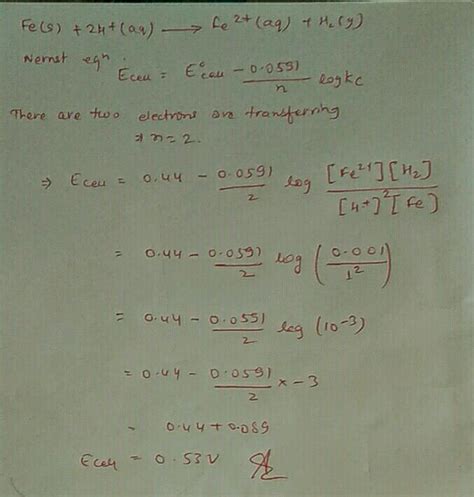 Fe(s) + 2H⁺(aq) ⟶ Fe²⁺(aq) + H₂(g)
Nernst eqⁿ.
Ecell = E°cell − 0.0591/n log Kc
There are two electrons are transferring
⇒ n = 2.
⇒ Ecell = 0.44 − 0.0591/2 log [Fe²⁺][H₂]/[H⁺]²[Fe]
= 0.44 − 0.0591/2 log (0.001/1²)
= 0.44 − 0.0591/2 log (10⁻³)
= 0.44 − 0.0591/2 × −3
= 0.44 + 0.089
Ecell = 0.53V